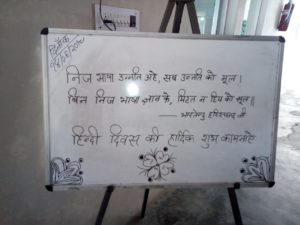 दिनाँक
निज भाषा उन्नति अहे, सब उन्नति को मूल।
बिन निज भाषा ज्ञान के, मिटत न हिय को सूल॥
— भारतेन्दु हरिश्चन्द्र जी
हिन्दी दिवस की हार्दिक शुभ कामनाएँ